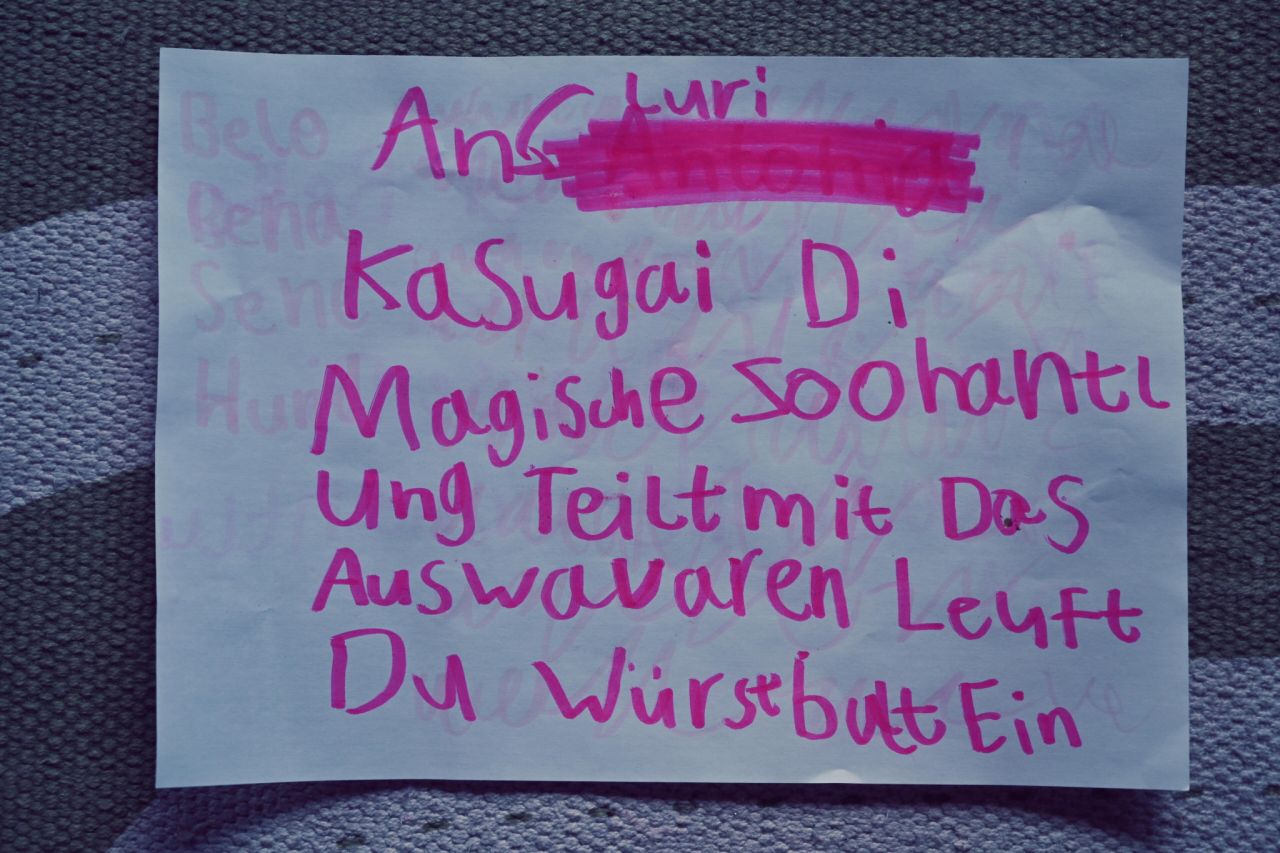 An Luri
Kasugai Di
Magische Soohantl
Ung Teilt mit Das
Auswavaren Leuft
Du Würstbutt Ein